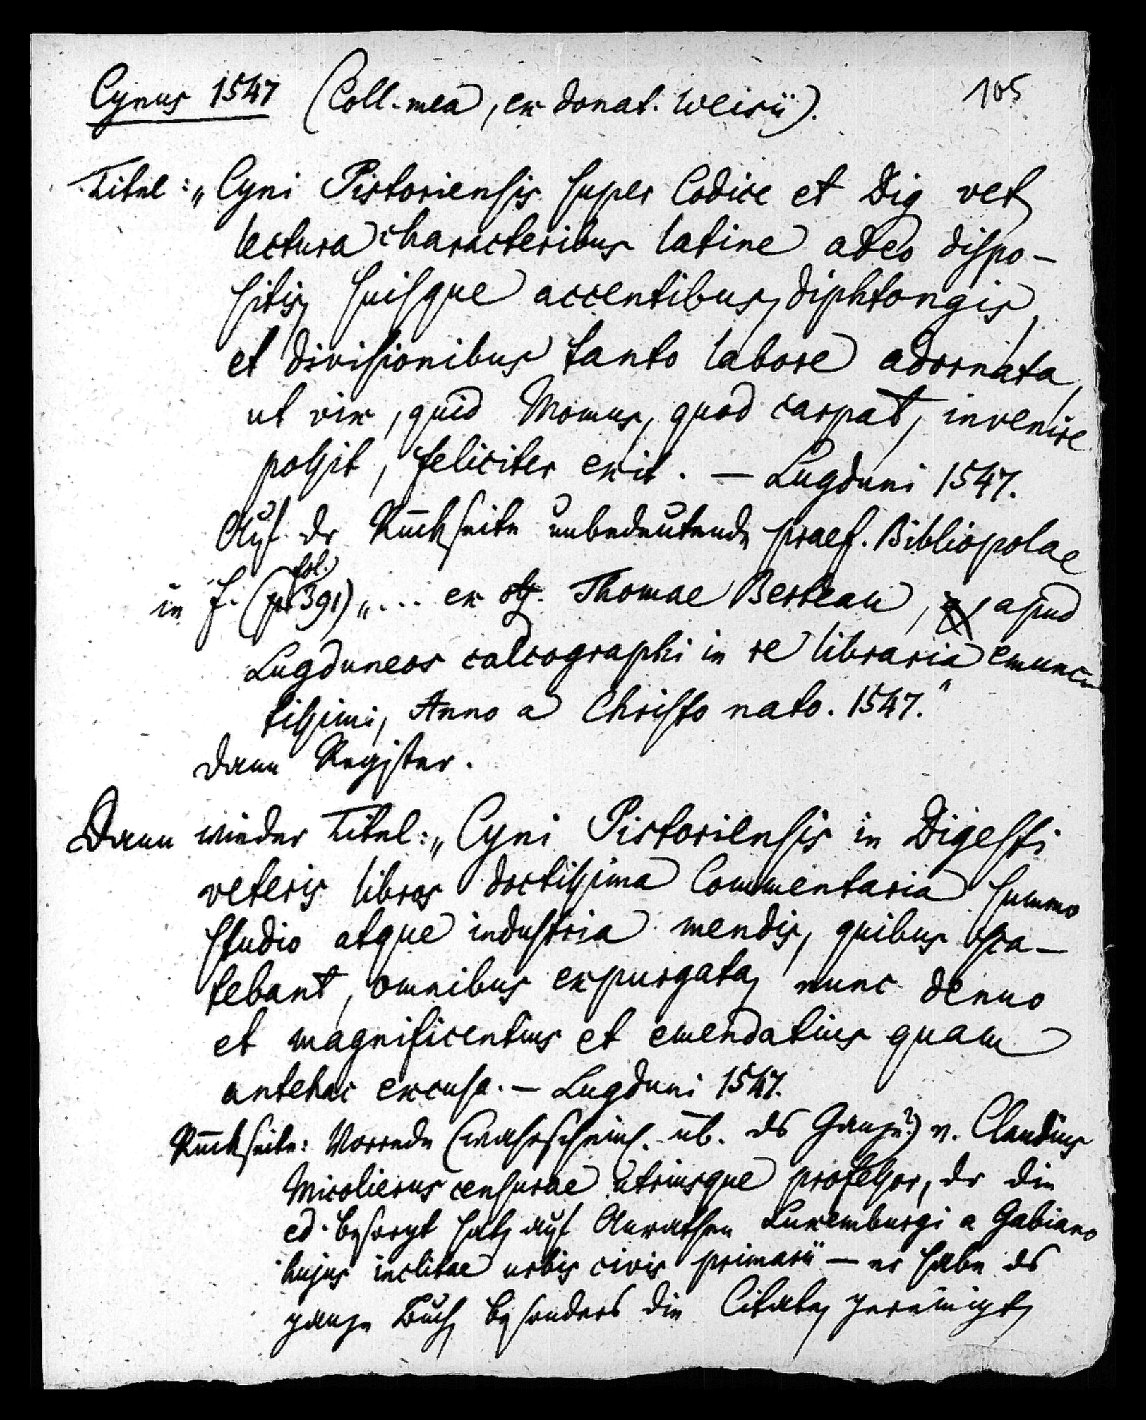 Cynus 1547 (Coll. mea, ex donat. Weisii). 105
Titel: „Cyni Pistoriensis super Codice et Dig vet
lectura characteribus latine adeo dispo-
sitis, suisque accentibus, diphtongis,
et divisionibus tanto labore adornata,
ut vix, quid Momus, quod carpat, invenire
possit, feliciter exit. — Lugduni 1547.
Auf dr Rückseite unbedeutende praef. Bibliopolae
in f. (fol. 391) „... ex Thomae Berteau, apud
Lugduneos calcographi in re libraria emunc-
tissimi, Anno a Christo nato. 1547."
dann Register.
Dann wieder Titel: „Cyni Pistoriensis in Digesti
veteris libros doctissima Commentaria summo
studio atque industria mendis, quibus sca-
tebant, omnibus expurgata, nunc denuo
et magnificentius et emendatius quam
antehac excusa. — Lugduni 1547.
Rückseite: Vorrede (wahrscheinl. üb. ds Ganze?) v. Claudius
Micolierus censurae utriusque professor, dr die
ed. besorgt hat, auf Anrathen Luxemburgi a Gabiano
hujus inclitae urbis civis primarii — er habe ds
ganze Buch besonders die Citate, gereinigt,